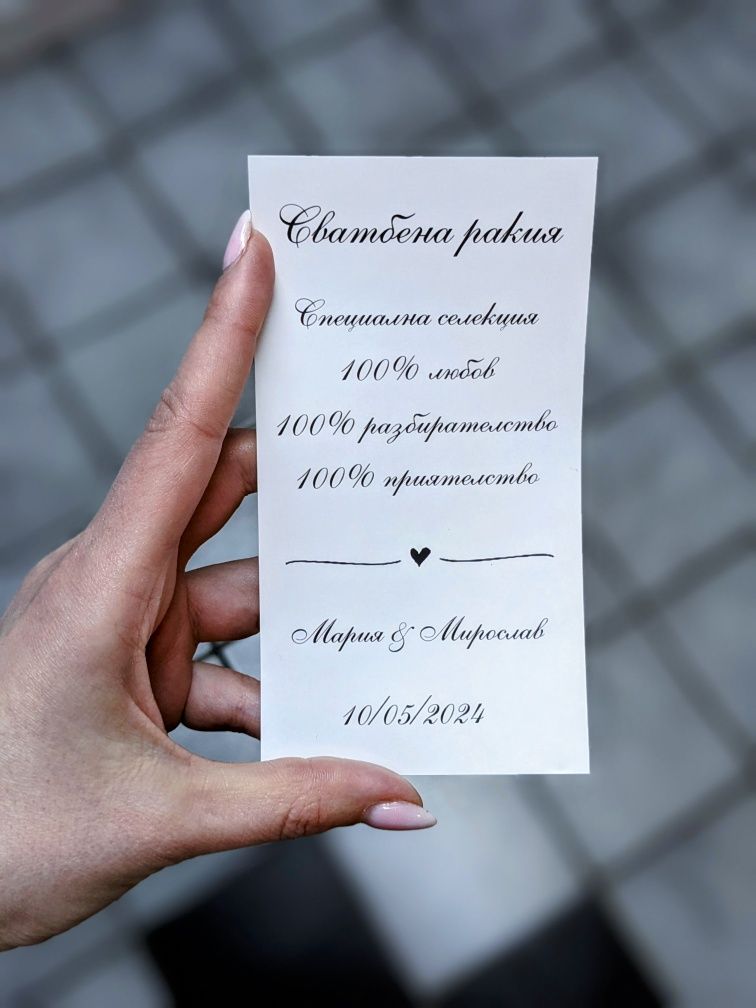 Сватбена ракия
Специална селекция
100% любов
100% разбирателство
100% приятелство
Мария & Мирослав
10/05/2024